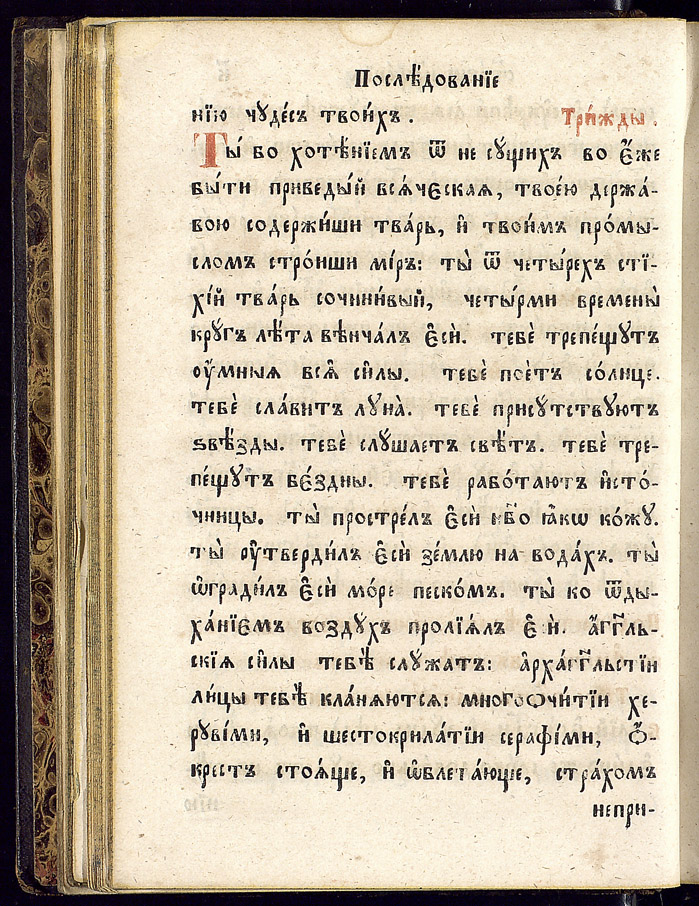 Послѣ́дованїе
нїю чуде́съ твои́хъ. Три́жды.
Ты́ бо хотѣ́нїемъ ѿ не су́щихъ во є҆́же
бы́ти приведы́й всѧ́ческаѧ, твоє́ю держа́-
вою содержи́ши тва́рь, и҆ твои́мъ про́мы-
сломъ стро́иши мі́ръ: ты̀ ѿ четы́рехъ стї-
хі́й тва́рь сочини́вый, четы́рми времены̀
кру́гъ лѣ́та вѣнча́лъ є҆сѝ. тебѐ трепе́щутъ
ᲂу҆́мныѧ всѧ̑ си̑лы. тебѐ пое́тъ со́лнце.
тебѐ сла́витъ луна̀. тебѐ прису́тствуютъ
ѕвѣ́зды. тебѐ слу́шаетъ свѣ́тъ. тебѐ тре-
пе́щутъ бє́здны. тебѐ рабо́таютъ и҆сто́-
чницы. ты̀ простре́лъ є҆сѝ нб҃о ꙗ҆́кѡ ко́жу.
ты̀ ᲂу҆тверди́лъ є҆сѝ зе́млю на вода́хъ. ты̀
ѡ҆гради́лъ є҆сѝ мо́ре песко́мъ. ты̀ ко ѿды-
ха́нїємъ во́здухъ пролїѧ́лъ є҆сѝ. а҆́гг҃ль-
скїѧ си̑лы тебѣ̀ слу́жатъ: а҆рха́гг҃льстїи
ли́цы тебѣ̀ кла́нѧютсѧ: многоѻчи́тїи хе-
руві́ми, и҆ шестокрила́тїи серафі́ми, ѻ҆́-
крестъ стоѧ́ще, и҆ ѡ҆блета́юще, стра́хомъ
непри-